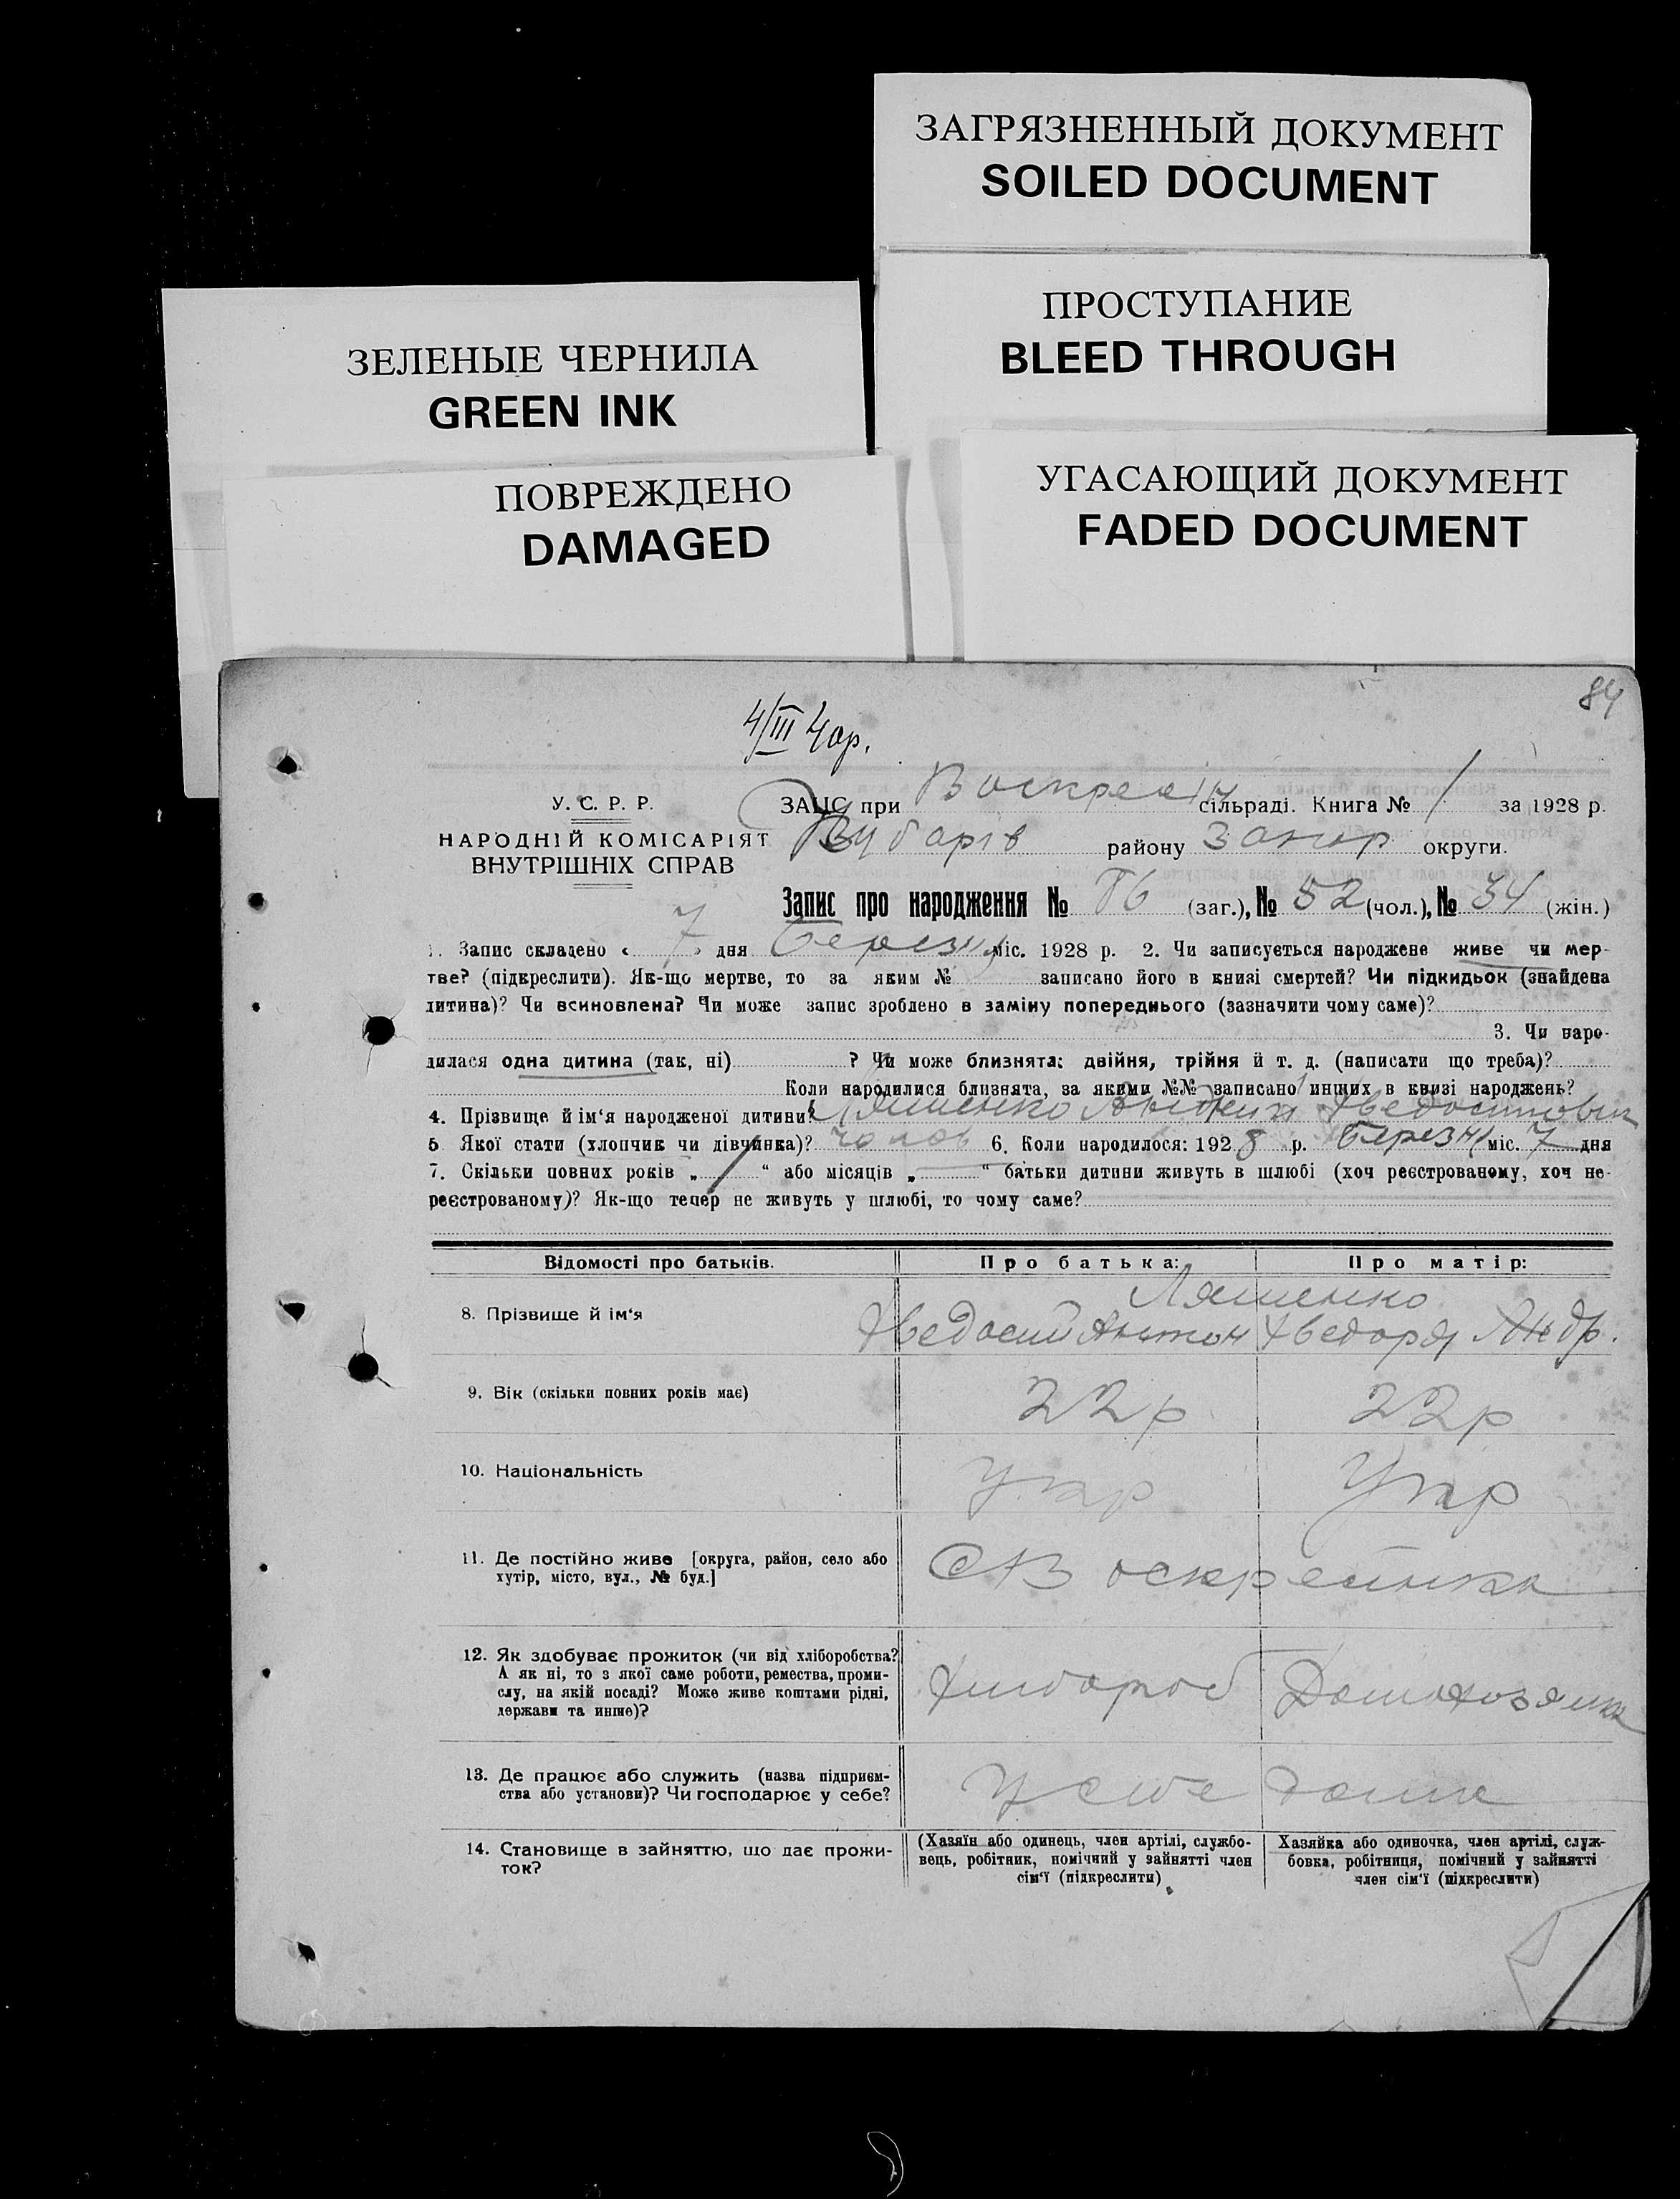 ЗАГРЯЗНЕННЫЙ ДОКУМЕНТ
SOILED DOCUMENT
ПРОСТУПАНИЕ
BLEED THROUGH
ЗЕЛЕНЫЕ ЧЕРНИЛА
GREEN INK
УГАСАЮЩИЙ ДОКУМЕНТ
FADED DOCUMENT
ПОВРЕЖДЕНО
DAMAGED
84
4/III
У. С. Р. Р.
НАРОДНІЙ КОМІСАРІЯТ
ВНУТРІШНІХ СПРАВ
ЗАГС при сільраді. Книга № 1 за 1928 р.
району Запор округи.
Запис про народження № 86 (заг.), № 52 (чол.), № 34 (жін.)
1. Запис складено « 7 » дня Березня міс. 1928 р. 2. Чи записується народжене живе чи мер-
тве? (підкреслити). Як-що мертве, то за яким № записано його в книзі смертей? Чи підкидьок (знайдена
дитина)? Чи всиновлена? Чи може запис зроблено в заміну попереднього (зазначити чому саме)?
3. Чи наро-
дилася одна дитина (так, ні) ? Чи може близнята: двійня, трійня й т. д. (написати що треба)?
Коли народилися близнята, за якими №№ записано инших в книзі народжень?
4. Прізвище й ім‘я народженої дитини? Ляшенко
5 Якої стати (хлопчик чи дівчинка)? чолов 6. Коли народилося: 1928 р. Березня міс. 7 дня
7. Скільки повних років „ “ або місяців „ “ батьки дитини живуть в шлюбі (хоч реєстрованому, хоч не-
реєстрованому)? Як-що тепер не живуть у шлюбі, то чому саме?
Відомості про батьків. Про батька: Про матір:
Ляшенко
8. Прізвище й ім‘я Хведосий Антон Хведора Андр.
9. Вік (скільки повних років має) 22р 22р
10. Національність Укр Укр
11. Де постійно живе [округа, район, село або
хутір, місто, вул., № буд.]
С Воскресінка
12. Як здобуває прожиток (чи від хліборобства?
А як ні, то з якої саме роботи, ремества, проми-
слу, на якій посаді? Може живе коштами рідні,
держави та инше)?
Хлібороб Домохозяйка
13. Де працює або служить (назва підприєм-
ства або установи)? Чи господарює у себе?
У себе дома
14. Становище в зайняттю, що дає прожи-
ток?
(Хазяїн або одинець, член артілі, службо-
вець, робітник, помічний у зайнятті член
сім‘ї (підкреслити)
Хазяйка або одиночка, член артілі, служ-
бовка, робітниця, помічний у зайнятті
член сім‘ї (підкреслити)